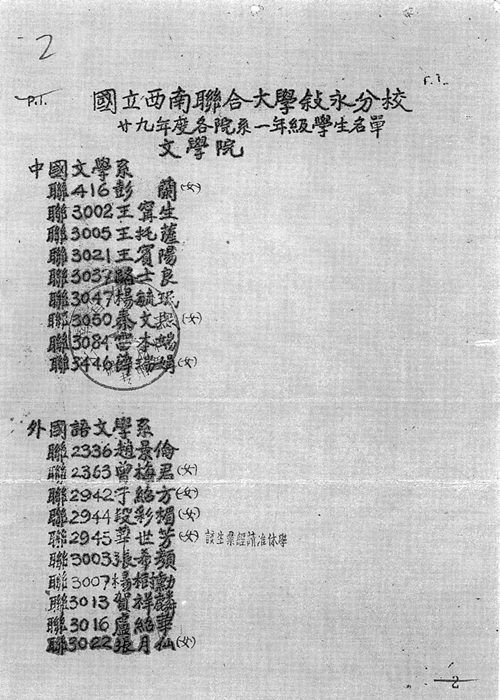 2
P.T.
F.1.
國立西南聯合大學敍永分校
廿九年度各院系一年級學生名單
文學院
中國文學系
聯416彭 蘭(女)
聯3002王甯生
聯3005王托薩
聯3021王賓陽
聯3037駱士良
聯3047楊毓珉
聯3050秦文熙(女)
聯3084雷本端
聯3446薛瑞娟(女)
外國語文學系
聯2336趙景倫
聯2363曾梅君(女)
聯2942于紹方(女)
聯2944段彩楣(女)
聯2945華世芳(女) 該生業經請准休學
聯3003張希顏
聯3007楊樹勳
聯3013賀祥麟
聯3016盧紹華
聯3022張月仙(女)
2